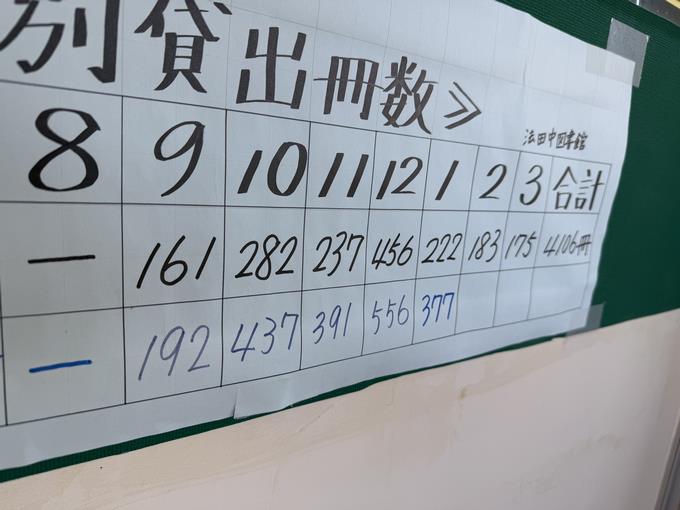 別貸出冊数≫
法田中図書館
8 9 10 11 12 1 2 3 合計
― 161 282 237 456 222 183 175 4106冊
― 192 437 391 556 377